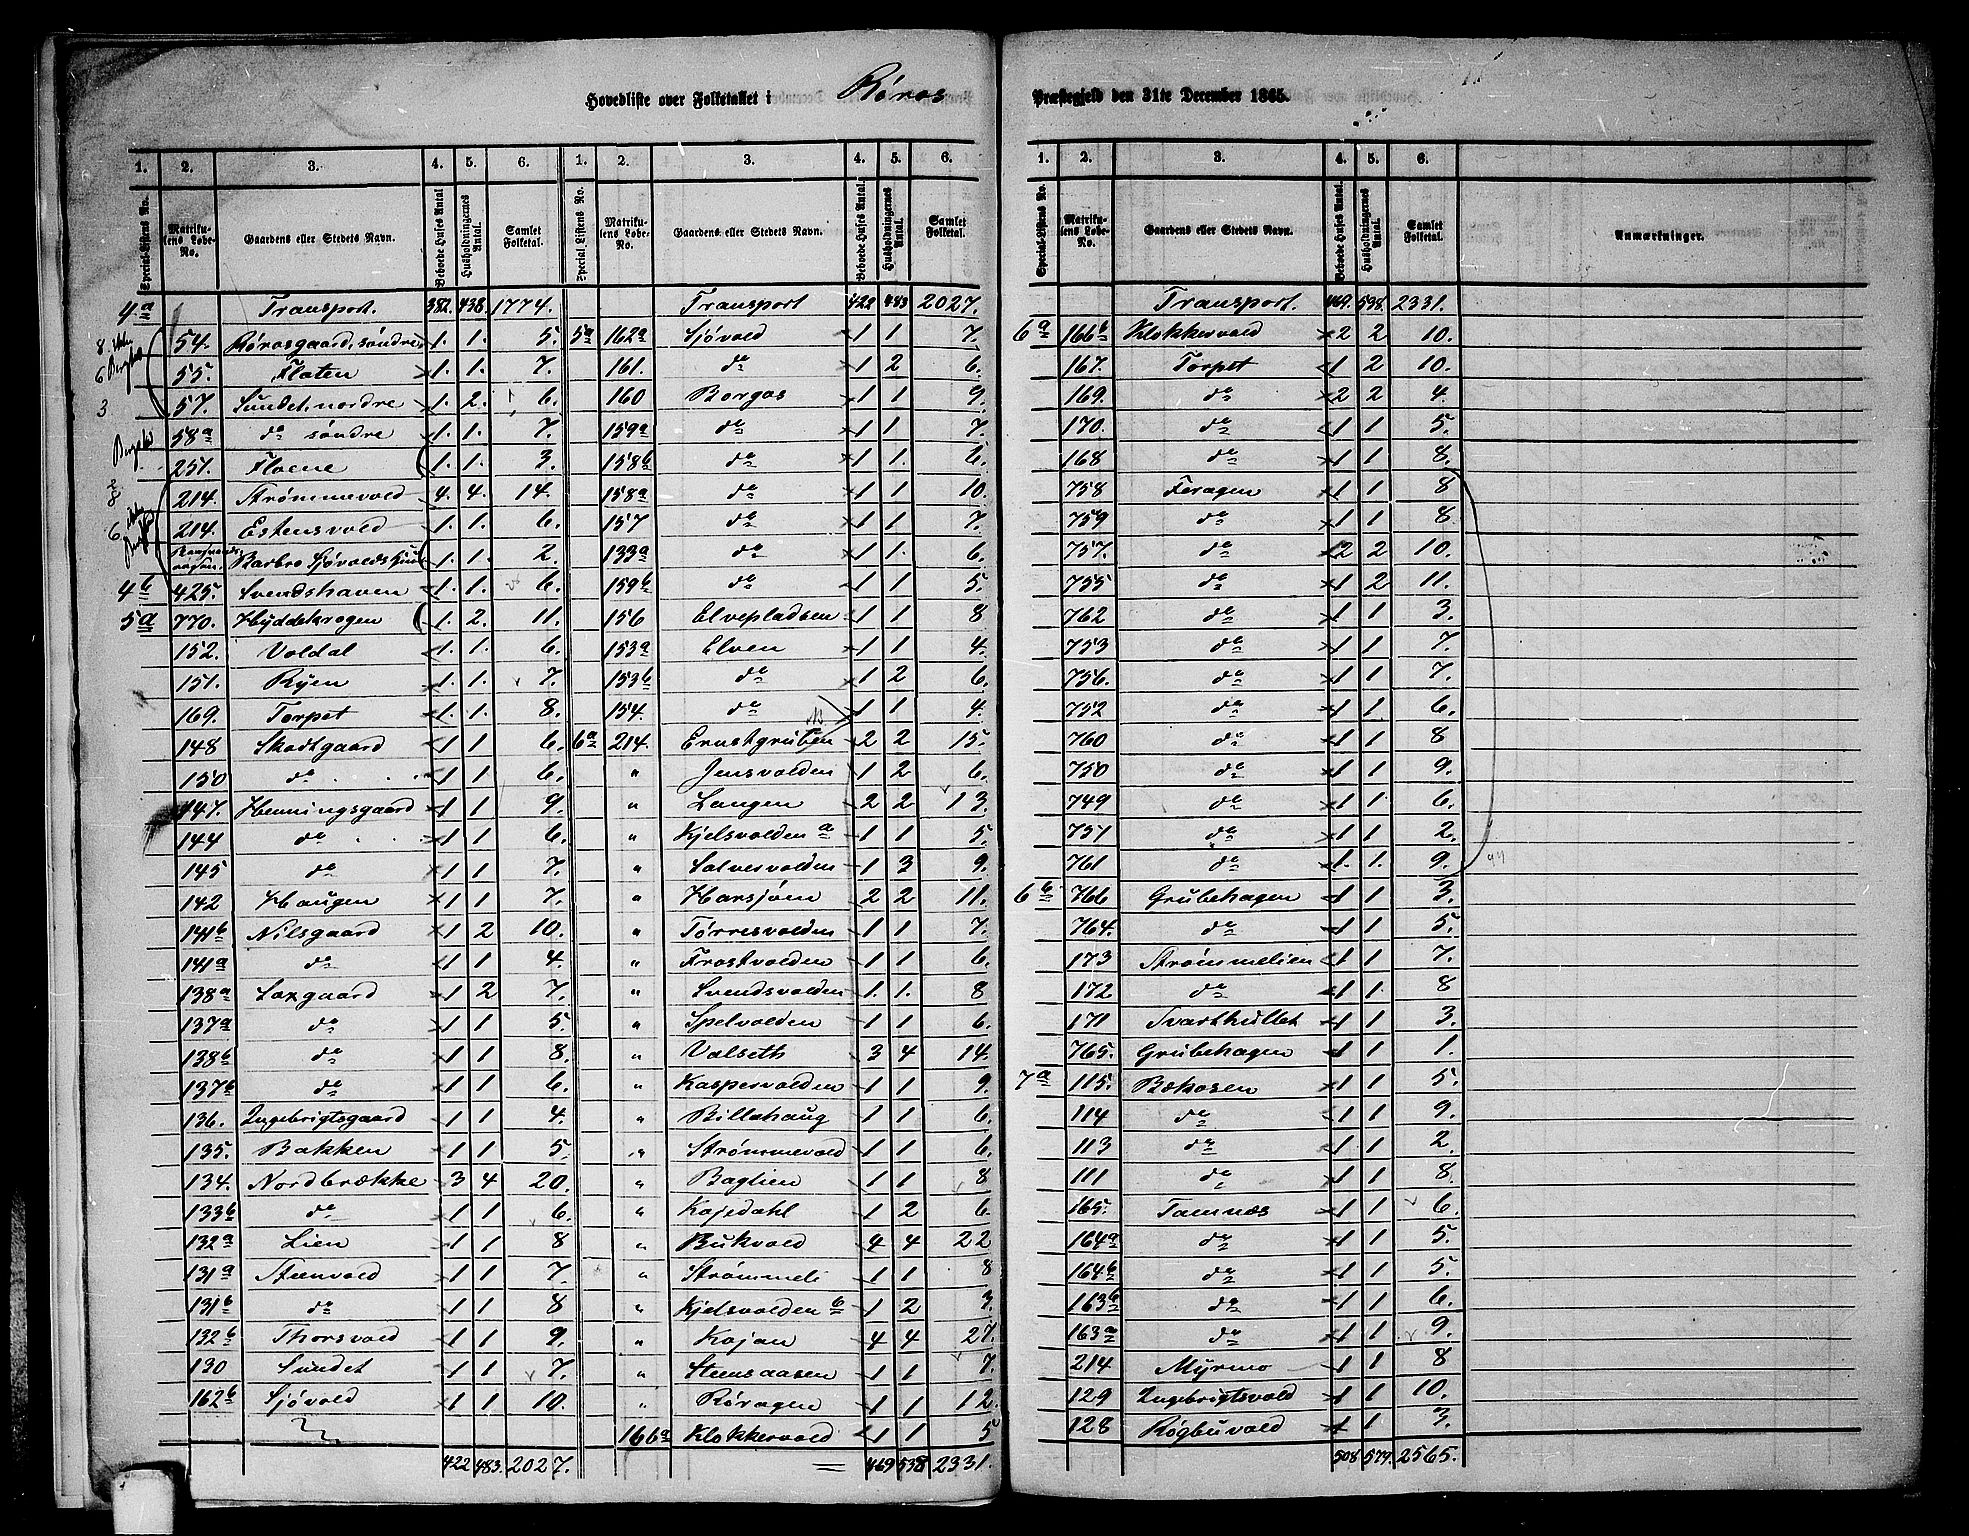 Hovedliste over Folketallet i Røros Præstegjeld den 31te December 1865.
1. 2. 3. 4. 5. 6. 1. 2. 3. 4. 5. 6.
Special-Listens No. Matrikulens Løbe-No. Gaardens eller Stedets Navn. Beboede Huses Antal Husholdningernes Antal. Samlet Folketal. Special-Listens No. Matrikulens Løbe-No. Gaardens eller Stedets Navn. Beboede Huses Antal. Husholdningernes Antal. Samlet Folketal.
4a Transport. 382. 438. 1774.
54. Rørosgaard, søndre 1. 1. 5.
55. Floten 1. 1. 7.
57. Sundet, nordre 1. 2. 6.
58a do søndre 1. 1. 7.
251. Floene 1. 1. 3.
214. Strømmevold 4. 4. 14.
214. Estensvold 1. 1. 6.
Barbro Sjøvoldshuus 1. 1. 2.
4b 425. Svendshaven 1. 1. 6.
5a 770. Hyddekrogen 1. 2. 11.
152. Voldal 1. 1. 6.
151. Ryen 1. 1. 7.
169. Torpet 1. 1. 8.
148 Skotgaard 1 1 6.
150 do 1 1 6.
147. Henningsgaard 1 1 9.
144 do 1 1 6.
145 do 1 1 7.
142 Haugen 1 1 7.
141b Nilsgaard 1 2 10.
141a do 1 1 4.
138a Laxgaard 1 2 7.
137a do 1 1 5.
138b do 1 1 8.
137b do 1 1 6.
136. Ingebrigtsgaard 1 1 4.
135. Bakken 1 1 5.
134. Nordbrække 3 4 20.
133b do 1 1 6.
132a Lien 1 1 8
131a Steenvold 1 1 7.
131b do 1 1 8
132b Thorsvold 1 1 9.
130 Sundet 1 1 7.
162b Sjøvold 1 1 10.
422 483. 2027.
Transport 422 483 2027.
5a 162a Sjøvold 1 1 7.
161. do 1 2 6.
160 Borgos 1 1 9.
159a do 1 1 7.
158b do 1 1. 6.
158a do 1 1 10.
157 do 1 1 7.
133a do 1 1. 6.
159b do 1 1 5.
156 Elvepladsen 1 1 8
153a Elven 1 1 4.
153b do 1 2 6.
154. do 1 1 4.
6a 214. Ernstgruben 2 2 15.
" Jensvolden 1 2 6.
" Langen 2 2 13.
" Kjelsvolden a 1 1 5.
" Salvesvolden 1 3 9.
" Harsjøen 2 2 11.
" Tørresvolden 1 1 7.
" Frostvolden 1 1 6.
" Svendsvolden 1. 1. 8
" Spelvolden 1 1 6.
" Valseth 3 4 14.
" Kaspervolden 1 1 9.
" Billehaug 1 1 6.
" Strømmevold 1 1 6.
" Baglien 1 1 8
" Kojedahl 1 2 6.
" Bukvold 4 4 22
" Strømmeli 1 1 8
" Kjelsvolden b 1 2 3.
" Kojan 4 4 27.
" Steensaasen 1 1 7.
" Røragen 1 1 12.
166a Klokkervold 1 1 5
469 538 2331.
1. 2. 3. 4. 5. 6.
Special-Listens No. Matrikulens Løbe-No. Gaardens eller Stedets Navn. Beboede Huses Antal. Husholdningernes Antal. Samlet Folketal. Anmærkninger.
Transport. 469. 538. 2331.
6a 166b Klokkervold 2 2 10.
167. Torpet 1 2 10.
169. do 2 2 4.
170. do 1 1 5.
168 do 1 1 8.
758 Feragen 1 1 8
759 do 1 1 8.
757. do 2 2 10.
755 do 1 2 11.
762 do 1 1 3.
753 do 1 1 7.
756. do 1 1 7.
752 do 1 1 6.
760 do 1 1 8
750 do 1 1 9.
749 do 1 1. 6.
751 do 1 1 2.
761 do 1. 1. 9.
6b 766 Grubehagen 1 1 3.
764. do 1 1 5.
173 Strømmelien 1 1 7.
172 do 1 1 8
171 Svarthullet 1 1 3.
765. Grubehagen 1 1 1.
7a 115. Bekosen 1 1 5.
114 do 1 1 9.
113 do 1 1 2
111 do 1 1 8.
165. Tamnæs 1 1 6.
164a do 1 1 5.
164b do 1 1 5.
163b do 1 1 6.
163a do 1 1 9.
214 Myrmo 1 1 8
129 Ingebrigtsvold 1 1 10.
128 Røgbuvold 1 1 3.
508 579. 2565.